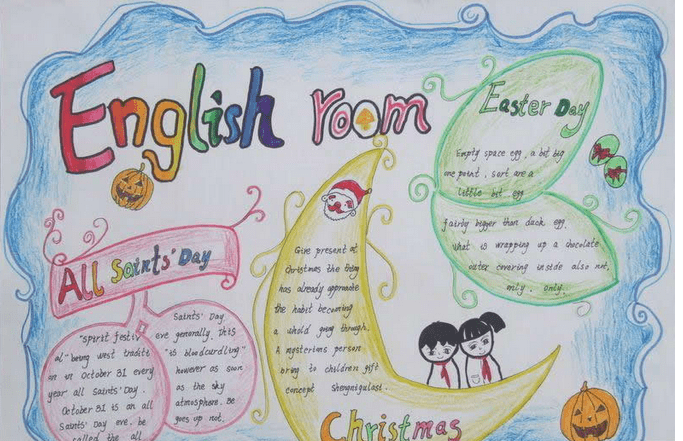 English room
Easter Day
Empty space egg, a bit big
one point, sort are a
little bit egg
fairly bigger than duck egg.
What is wrapping up a chocolate
outer covering inside also not,
only. only.
All Saints' Day
"Spirit festiv
al" being west traditi
on on October 31 every
year all Saints' Day.
October 31 is an all
Saints' Day eve. be
called the all
Saints' Day
eve generally. This
"is bloodcurdling"
however as soon
as the sky
atmosphere. Be
goes up not.
Give present at
Christmas the thing
has already approate
the habit becoming
a whold going through.
A mysterims person
bring to children gift
concept Shengnigulast.
Christmas